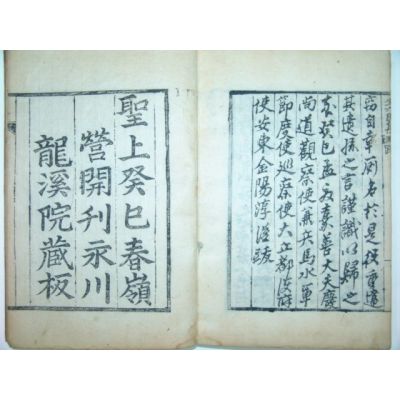 自幸廁名於是役重違
其遺孫之言謹識以歸之
癸巳孟夏嘉善大夫慶
尚道觀察使兼兵馬水軍
節度使巡察使大丘都護府
使安東金陽淳謹跋
聖上癸巳春嶺
營開刊永川
龍溪院藏板